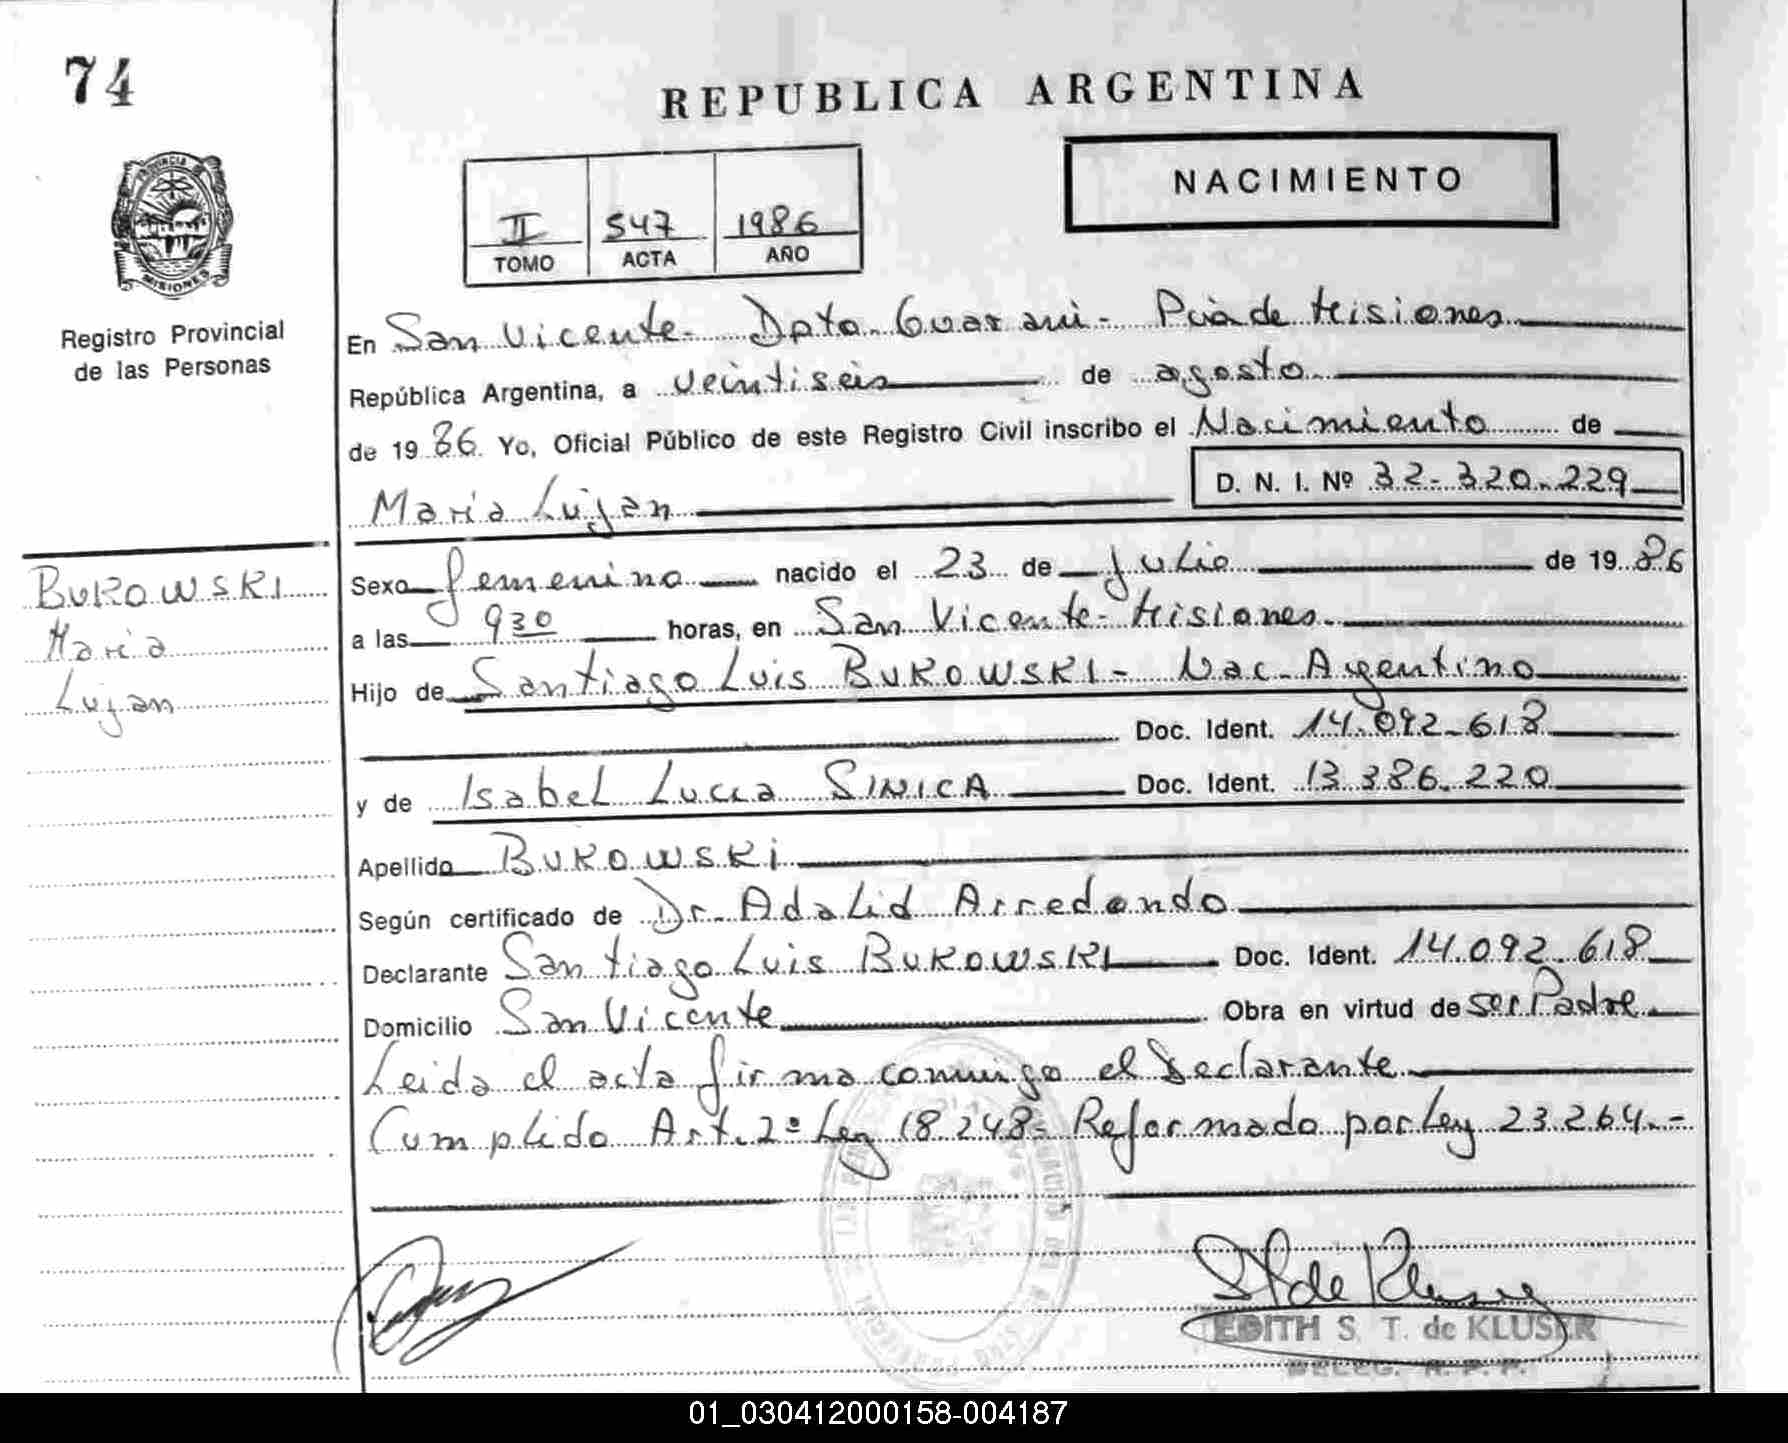 74
REPUBLICA ARGENTINA
NACIMIENTO
II 547 1986
TOMO ACTA AÑO
PROVINCIA DE
MISIONES
Registro Provincial
de las Personas
En San Vicente - Dpto Guarani - Pcia de Misiones
República Argentina, a veintiseis de agosto
de 19 86 Yo, Oficial Público de este Registro Civil inscribo el Nacimiento de
D. N. I. Nº 32-320-229
Maria Lujan
BUKOWSKI
Maria
Lujan
Sexo femenino nacido el 23 de Julio de 19 86
a las 930 horas, en San Vicente - Misiones
Hijo de Santiago Luis BUKOWSKI - Nac. Argentino
Doc. Ident. 14.092.618
y de Isabel Lucia SINICA Doc. Ident. 13.386.220
Apellido BUKOWSKi
Según certificado de Dr. Adalid Arredondo
Declarante Santiago Luis BUKOWSKI Doc. Ident. 14.092.618
Domicilio San Vicente Obra en virtud de ser Padre
Leida el acta firma conmigo el Declarante
Cumplido Art. 2º Ley 18.248- Reformado por Ley 23.264.-
EDITH S. T. de KLUSER
DELEG. R. P. P.
01_030412000158-004187